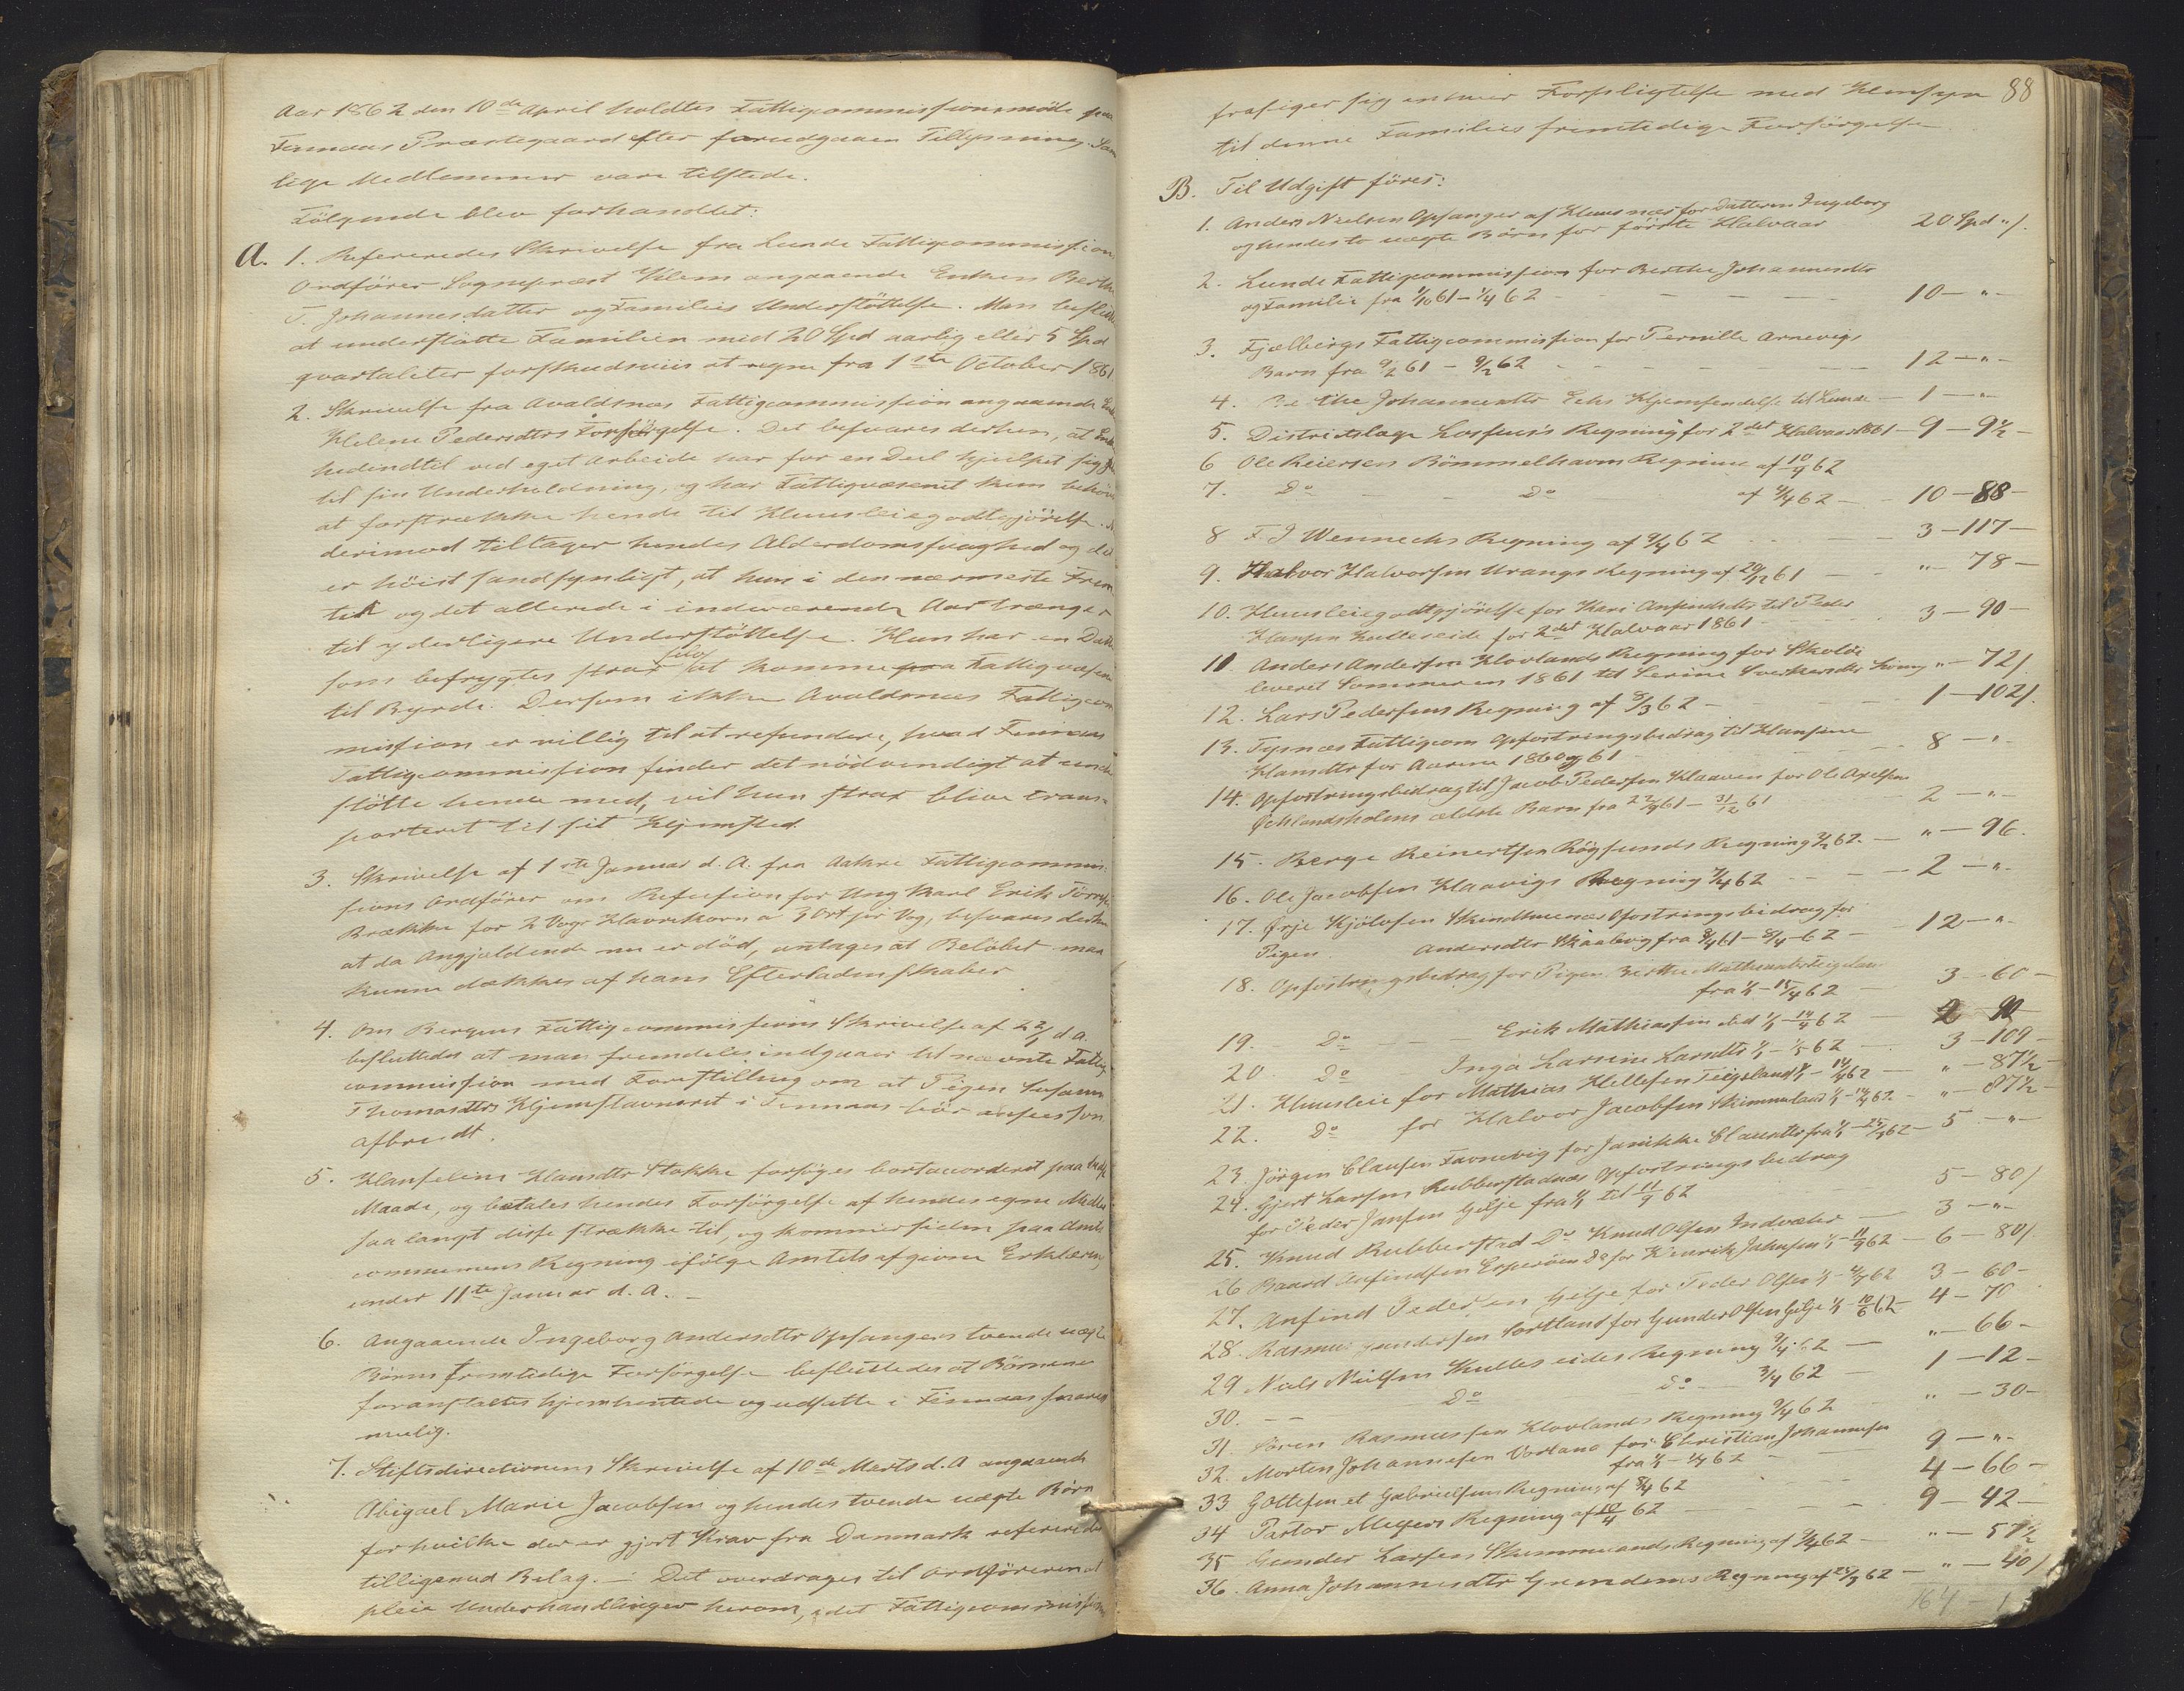 Aar 1862 den 10de April holdtes Fattigcommissionsmöde paa
Finnaas Præstegaard efter forudgaaen Tillysning. Sam
lige Medlemmer vare tilstede.
Følgende blev forhandlet:
A. 1. Refereredes Skrivelse fra Lunde Fattigcommissions
Ordförer Sognepræst Klem angaaende Enken Berthe
T. Johannesdatter og Families Understöttelse. Man besluttede
at understötte Familien med 20 Spd aarlig eller 5 Spd
qvartaliter forskudsviis at regne fra 1ste October 1861
2. Skrivelse fra Avaldsnæs Fattigcommission angaaende Enke
Helene Pedersdtrs Forsörgelse. Det besvares derhen, at Enken
hidindtil ved eget Arbeide har for en Deel hjulpet sig
til sin Underholdning, og har Fattigvæsenet kun behövet
at forstrække hende til Huusleiegodtgjörelse.
derimod tiltager hendes Alderdomssvaghed og det
er höist sandsynligt, at hun i den nærmeste Frem
tid og det allerede i indeværende Aar trænger
til yderligere Understöttelse. Hun har en Datter
som befrygtes strax selv at komme paa Fattigvæsenet
til Byrde. Dersom ikke Avaldsnæs Fattigcom
mission er villig til at refundere, hvad Finnaas
Fattigcommission finder det nödvendigt at under
stötte hende med, vil hun strax blive trans-
porteret til sit Hjemsted.
3. Skrivelse af 1ste Januar d. A. fra Aakre Fattigcommis-
sions Ordförer om Refusion for Ung Karl Erik Törres
Brække for 2 Voger Havrekorn a 3 Ort pr Vog, besvares derhen
at da Angjeldende nu er död, antages at Belöbet maa
kunne dækkes af hans Efterladenskaber
4. Om Bergens Fattigcommissions Skrivelse af d. A.
besluttedes at man fremdeles indgaaer til nævnte Fattig
commission med Forestilling om at Pigen Susanne
Thomasdtrs Hjemstavnsret i Finnaas bör ansees som
afbrudt.
5. Hanseline Hansdtr Stokke forsøges bortaccorderet paa bedste
Maade, og betales hendes Forsörgelse af hendes egne Midler
saa langt disse strække til, og kommer siden paa Amts
communens Regning ifølge Amtets afgivne Erklæring
under 11te Januar d. A. -
6. Angaaende Ingeborg Andersdtr Opsangers tvende uægte
Börns fremtidige Forsörgelse besluttedes at Börnene
foranstaltes hjemhentede og udsatte i Finnaas snarest
mulig.
7. Stiftsdirectionens Skrivelse af 10de Marts d. A angaaende
Abigael Marie Jacobsen og hendes tvende uægte Börn
for hvilke der er gjort Krav fra Danmark refereredes
tilligemed Bilag. - Det overdrages til Ordföreren at
pleie Underhandlinger herom, idet Fattigcommissionen
88
frasiger sig enhver Forpligtelse med Hensyn
til denne Families fremtidige Forsörgelse
B. Til Udgift föres:
1. Anders Nielsen Opsanger af Huusnæs for Datteren Ingeborg
og hendes to uægte Börn for förste Halvaar 20 Spd " /.
2. Lunde Fattigcommission for Berthe Johannesdtr
og Familie fra 1/10 61 - 1/4 62 - 10 - " -
3. Fjælbergs Fattigcommission for Pernille Arnevigs
Barn fra 9/2 61 - 9/2 62 - 12 - " -
4. Berthe Johannesdtr Hjemsendelse til Lunde - 1 - " -
5. Districtslæge Regning for 2det Halvaar 1861 - 9 - 9½ -
6 Ole Reiersen Bömmelhavns Regning af 10/4 62
7. Do - Do af 4/4 62 - 10 - 88 -
8 F J Wennechs Regning af 9/4 62 - 3 - 117 -
9. Halvor Halvorsen Urangs Regning af 29/12 61 - " - 78 -
10. Huusleiegodtgjörelse for Kari Anfindsdtr til Peder
Hansen Kulleseide for 2det Halvaar 1861 3 - 90 -
11. Anders Andersen Hovlands Regning for Skolöi
leveret Sommeren 1861 til Serine Sverkersdtr " - 72/.
12. Lars Pedersens Regning af 8/3 62 - 1 - 102/.
13. Tysnæs Fattigcom Opfostringsbidrag til Hansine
Hansdtr for Aarene 1860 og 61 - 8 - " -
14. Opfostringsbidrag til Jacob Pedersen Haaven for Ole Axelsen
Öklandsholms ældste Barn fra 61 - 31/12 61 2 - " -
15. Berge Reinertsen Rögsunds Regning 62. - " - 96.
16. Ole Jacobsen Haavigs Regning 62 - 2 - " -
17. Örje Kjölofsen Skendhuunes Opfostringsbidrag for
Pigen Andersdtr Skaalevig fra 8/4 61 - 8/4 - 62 - 12 - " -
18. Opfostringsbidrag for Pigen Berthe Mathiasdtr Teigeland
fra 1/1 - 15/4 62 - 3 - 60 -
19. - Do - Erik Mathiassen ibid 1/1 - 14/4 62 - 2 90
20 Do - Inga Larsine Larsdtr 1/1 - 1/5 62 - 3 - 109 -
21. Huusleie for Mathias Hellesen Teigeland 1/1 - 14/4 62 - " - 87½ -
22. Do for Halvor Jacobsen Skimmeland 1/1 - 14/4 62 - " - 87½ -
23. Jörgen Clausen Favnevig for Janikke Clausdtr fra 1/1 - 62 - 5 - " -
24. Gjert Larsen Rubbestadnæs Opfostringsbidrag
for Peder Jansen Gilje fra 1/1 til 11/9 62 5 - 80/
25. Knud Rubbestad Do Knud Olsen Indvær 3 - " -
26 Baard Anfindsen Esperöen Do for Henrik Johnsen 1/1 - 11/9 62 - 6 - 80/.
27. Anfind Pedersen Gilje for Peder Olsen 1/1 - 62 3 - 60 -
28. Rasmus Gundersen Sortland for Gunder Olsen Gilje 1/1 - 10/6 62 - 4 - 70
29 Niels Nielsen Kulleseides Regning 9/4 62 - " - 66 -
30. - - Do - do - 3/4 62 - 1 - 12 -
31. Sören Rasmussen Hovlands Regning 9/4 62 " - 30 -
32. Morten Johannesen Vorland for Christian Johannesen
fra 1/1 - 62 - 9 - " -
33 G Ottesen et Gabrielsens Regning af 8/4 62 4 - 66 -
34 Pastor Meyers Regning af 10/4 62 - 9 - 42 -
35 Gunder Larsen Skimmelands Regning af 62 - " - 57½
36. Anna Johannesdtr Grindems Regning af 62 - " - 40/.
164 - 1